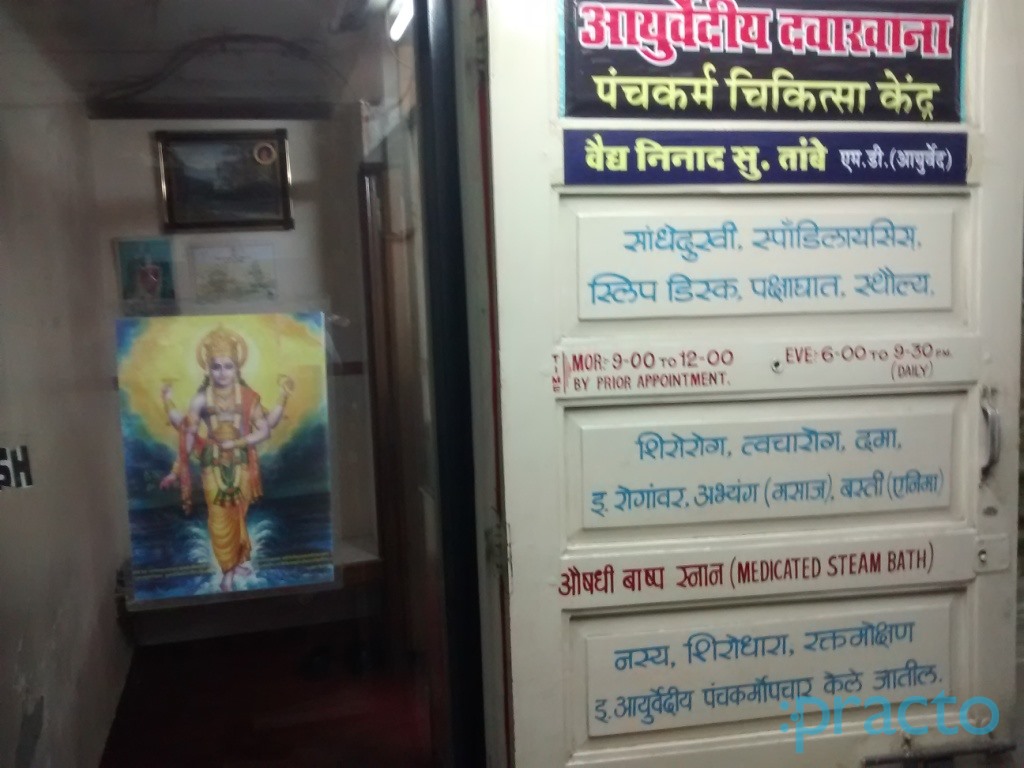 आयुर्वेदीय दवाखाना
पंचकर्म चिकित्सा केंद्र
वैद्य निनाद सु. तांबे एम.डी.(आयुर्वेद)
सांधेदुखी, स्पाँडिलायसिस,
स्लिप डिस्क, पक्षाघात, स्थौल्य,
TIME
MOR:- 9-00 TO 12-00
EVE:- 6-00 TO 9-30 P.M.
BY PRIOR APPOINTMENT.
(DAILY)
शिरोरोग, त्वचारोग, दमा,
इ. रोगांवर, अभ्यंग (मसाज), बस्ती (एनिमा)
औषधी बाष्प स्नान (MEDICATED STEAM BATH)
नस्य, शिरोधारा, रक्तमोक्षण
इ. आयुर्वेदीय पंचकर्मोपचार केले जातील.
SH
:practo